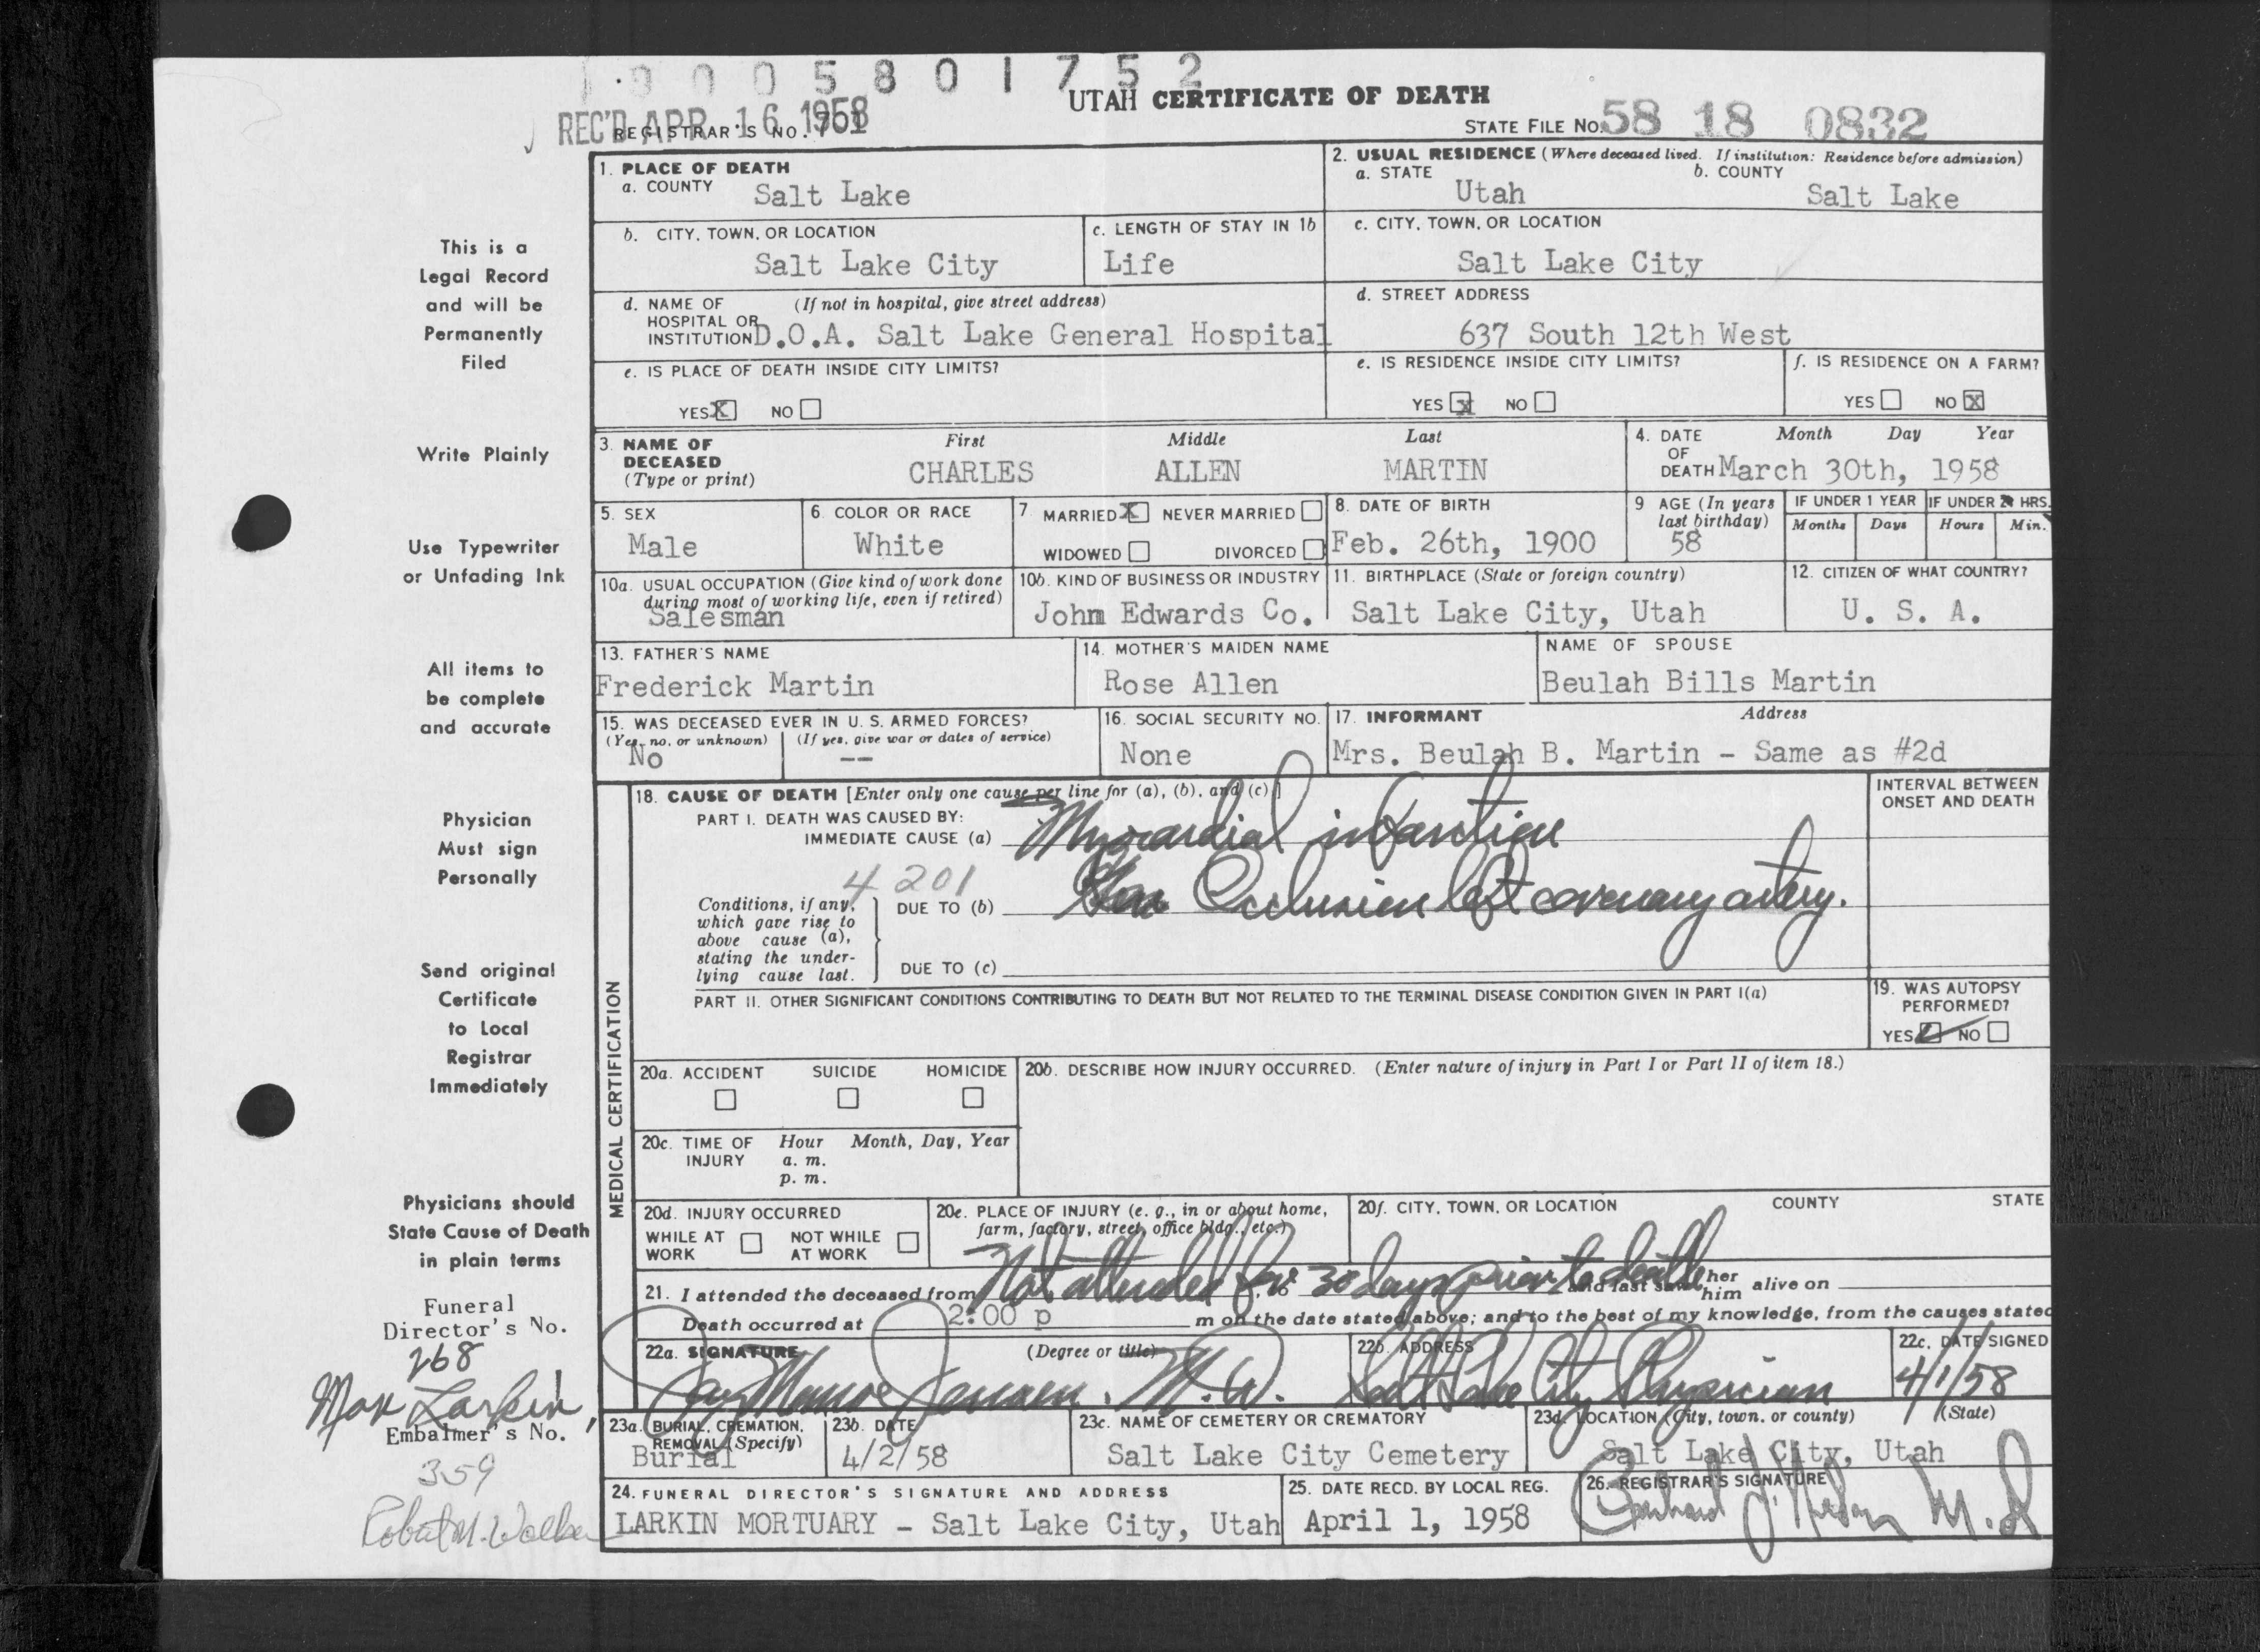 1 0 0 0 5 8 0 1 7 5 2
UTAH CERTIFICATE OF DEATH
REC'D APR 16 1958
REGISTRAR'S NO. 701
STATE FILE NO. 58 18 0832
1. PLACE OF DEATH
a. COUNTY Salt Lake
2. USUAL RESIDENCE (Where deceased lived. If institution: Residence before admission)
a. STATE Utah b. COUNTY Salt Lake
b. CITY, TOWN, OR LOCATION Salt Lake City
c. LENGTH OF STAY IN 1b Life
c. CITY, TOWN, OR LOCATION Salt Lake City
d. NAME OF HOSPITAL OR INSTITUTION (If not in hospital, give street address) D.O.A. Salt Lake General Hospital
d. STREET ADDRESS 637 South 12th West
e. IS PLACE OF DEATH INSIDE CITY LIMITS?
YES X NO
e. IS RESIDENCE INSIDE CITY LIMITS?
YES X NO
f. IS RESIDENCE ON A FARM?
YES NO X
3. NAME OF DECEASED (Type or print) First Middle Last
CHARLES ALLEN MARTIN
4. DATE OF DEATH Month Day Year
March 30th, 1958
5. SEX Male
6. COLOR OR RACE White
7. MARRIED X NEVER MARRIED
WIDOWED DIVORCED
8. DATE OF BIRTH Feb. 26th, 1900
9 AGE (In years last birthday) 58
IF UNDER 1 YEAR Months Days
IF UNDER 24 HRS. Hours Min.
10a. USUAL OCCUPATION (Give kind of work done during most of working life, even if retired) Salesman
10b. KIND OF BUSINESS OR INDUSTRY John Edwards Co.
11. BIRTHPLACE (State or foreign country) Salt Lake City, Utah
12. CITIZEN OF WHAT COUNTRY? U. S. A.
13. FATHER'S NAME Frederick Martin
14. MOTHER'S MAIDEN NAME Rose Allen
NAME OF SPOUSE Beulah Bills Martin
15. WAS DECEASED EVER IN U. S. ARMED FORCES?
(Yes, no, or unknown) (If yes, give war or dates of service)
No --
16. SOCIAL SECURITY NO. None
17. INFORMANT Address
Mrs. Beulah B. Martin - Same as #2d
MEDICAL CERTIFICATION
18. CAUSE OF DEATH [Enter only one cause per line for (a), (b), and (c).]
INTERVAL BETWEEN ONSET AND DEATH
PART I. DEATH WAS CAUSED BY:
IMMEDIATE CAUSE (a) Myocardial infarction
4 201
Conditions, if any, which gave rise to above cause (a), stating the underlying cause last.
DUE TO (b) Occlusion left coronary artery.
DUE TO (c)
PART II. OTHER SIGNIFICANT CONDITIONS CONTRIBUTING TO DEATH BUT NOT RELATED TO THE TERMINAL DISEASE CONDITION GIVEN IN PART I(a)
19. WAS AUTOPSY PERFORMED?
YES NO
20a. ACCIDENT SUICIDE HOMICIDE
20b. DESCRIBE HOW INJURY OCCURRED. (Enter nature of injury in Part I or Part II of item 18.)
20c. TIME OF INJURY Hour Month, Day, Year
a. m.
p. m.
20d. INJURY OCCURRED
WHILE AT WORK NOT WHILE AT WORK
20e. PLACE OF INJURY (e. g., in or about home, farm, factory, street, office bldg., etc.)
20f. CITY, TOWN, OR LOCATION COUNTY STATE
21. I attended the deceased from Not attended for 30 days prior to death, to and last saw her him alive on
Death occurred at 2:00 p m on the date stated above; and to the best of my knowledge, from the causes stated
22a. SIGNATURE (Degree or title) Jay Monroe Jensen, M.D.
22b. ADDRESS Salt Lake City Physician
22c. DATE SIGNED 4/1/58
23a. BURIAL, CREMATION, REMOVAL (Specify) Burial
23b. DATE 4/2/58
23c. NAME OF CEMETERY OR CREMATORY Salt Lake City Cemetery
23d. LOCATION (City, town, or county) (State) Salt Lake City, Utah
24. FUNERAL DIRECTOR'S SIGNATURE AND ADDRESS
LARKIN MORTUARY - Salt Lake City, Utah
25. DATE RECD. BY LOCAL REG. April 1, 1958
26. REGISTRAR'S SIGNATURE M.D.
This is a
Legal Record
and will be
Permanently
Filed
Write Plainly
Use Typewriter
or Unfading Ink
All items to
be complete
and accurate
Physician
Must sign
Personally
Send original
Certificate
to Local
Registrar
Immediately
Physicians should
State Cause of Death
in plain terms
Funeral
Director's No.
268
Max Larkin,
Embalmer's No.
359
Robert M.